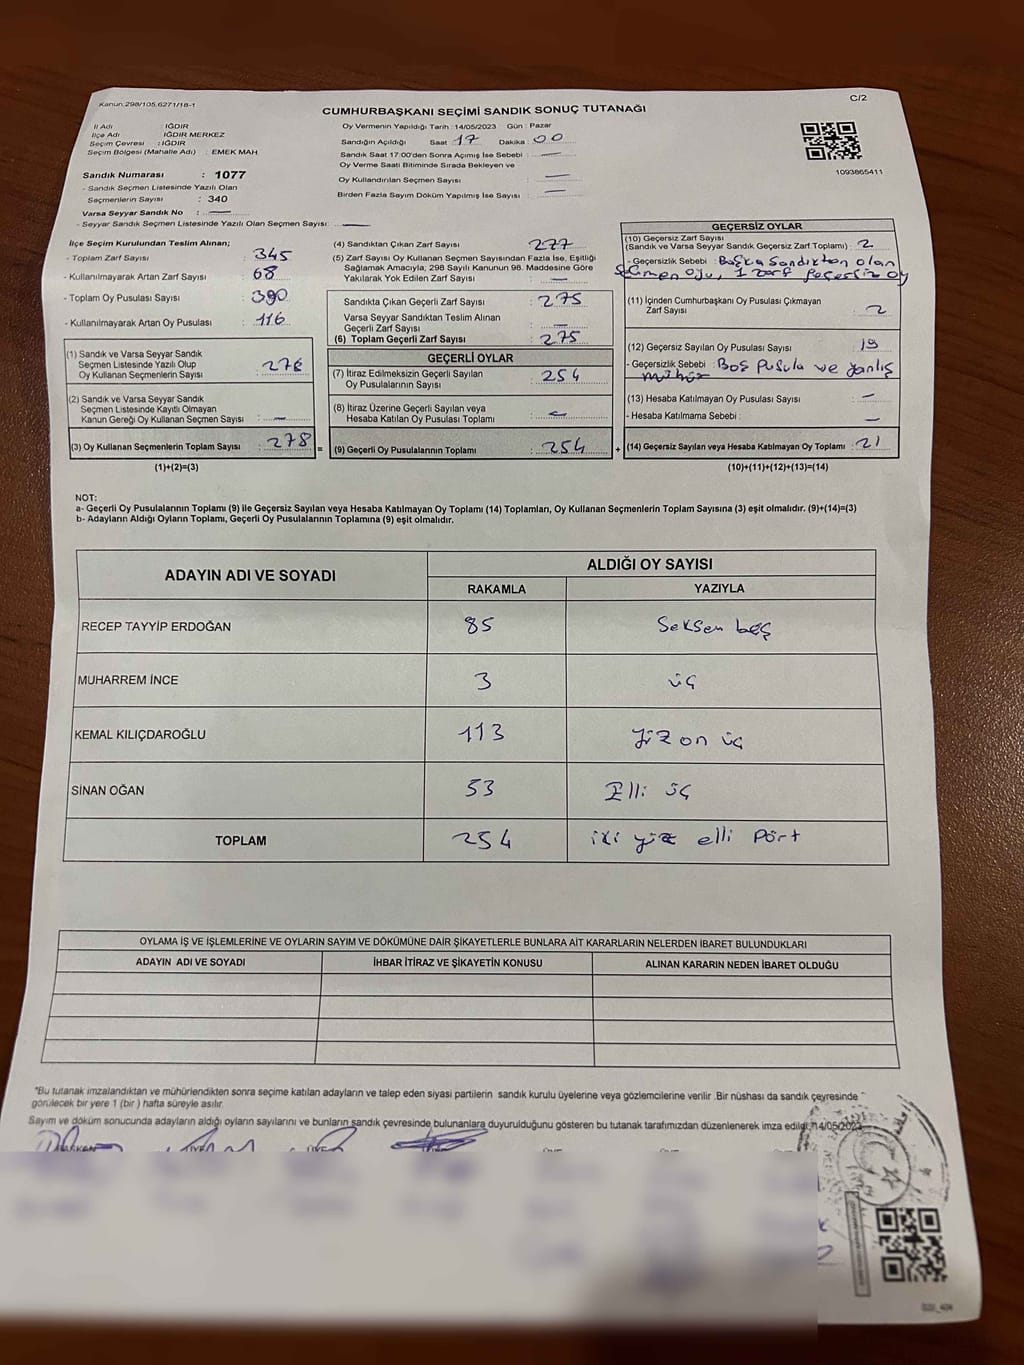 Kanun:298/105,6271/18-1
C/2
CUMHURBAŞKANI SEÇİMİ SANDIK SONUÇ TUTANAĞI
İl Adı : IĞDIR
İlçe Adı : IĞDIR MERKEZ
Seçim Çevresi : IĞDIR
Seçim Bölgesi (Mahalle Adı) : EMEK MAH.
Sandık Numarası : 1077
- Sandık Seçmen Listesinde Yazılı Olan
Seçmenlerin Sayısı : 340
Varsa Seyyar Sandık No : —
- Seyyar Sandık Seçmen Listesinde Yazılı Olan Seçmen Sayısı : —
Oy Vermenin Yapıldığı Tarih : 14/05/2023 Gün : Pazar
Sandığın Açıldığı Saat : 17 Dakika : 00
Sandık Saat 17:00'den Sonra Açılmış İse Sebebi : —
Oy Verme Saati Bitiminde Sırada Bekleyen ve
Oy Kullandırılan Seçmen Sayısı : —
Birden Fazla Sayım Döküm Yapılmış İse Sayısı : —
1093865411
İlçe Seçim Kurulundan Teslim Alınan;
- Toplam Zarf Sayısı : 345
- Kullanılmayarak Artan Zarf Sayısı : 68
- Toplam Oy Pusulası Sayısı : 390
- Kullanılmayarak Artan Oy Pusulası : 116
(1) Sandık ve Varsa Seyyar Sandık
Seçmen Listesinde Yazılı Olup
Oy Kullanan Seçmenlerin Sayısı : 278
(2) Sandık ve Varsa Seyyar Sandık
Seçmen Listesinde Kayıtlı Olmayan
Kanun Gereği Oy Kullanan Seçmen Sayısı : —
(3) Oy Kullanan Seçmenlerin Toplam Sayısı : 278
(1)+(2)=(3)
=
(4) Sandıktan Çıkan Zarf Sayısı : 277
(5) Zarf Sayısı Oy Kullanan Seçmen Sayısından Fazla İse, Eşitliği
Sağlamak Amacıyla, 298 Sayılı Kanunun 98. Maddesine Göre
Yakılarak Yok Edilen Zarf Sayısı : —
Sandıkta Çıkan Geçerli Zarf Sayısı : 275
Varsa Seyyar Sandıktan Teslim Alınan
Geçerli Zarf Sayısı : —
(6) Toplam Geçerli Zarf Sayısı : 275
GEÇERLİ OYLAR
(7) İtiraz Edilmeksizin Geçerli Sayılan
Oy Pusulalarının Sayısı : 254
(8) İtiraz Üzerine Geçerli Sayılan veya
Hesaba Katılan Oy Pusulası Toplamı : —
(9) Geçerli Oy Pusulalarının Toplamı : 254
+
GEÇERSİZ OYLAR
(10) Geçersiz Zarf Sayısı
(Sandık ve Varsa Seyyar Sandık Geçersiz Zarf Toplamı) : 2
- Geçersizlik Sebebi : Başka Sandıktan olan
Seçmen oyu, 1 zarf geçersiz oy
(11) İçinden Cumhurbaşkanı Oy Pusulası Çıkmayan
Zarf Sayısı : 2
(12) Geçersiz Sayılan Oy Pusulası Sayısı : 19
- Geçersizlik Sebebi : Boş Pusula ve yanlış
mühür
(13) Hesaba Katılmayan Oy Pusulası Sayısı : —
- Hesaba Katılmama Sebebi : —
(14) Geçersiz Sayılan veya Hesaba Katılmayan Oy Toplamı : 21
(10)+(11)+(12)+(13)=(14)
NOT:
a- Geçerli Oy Pusulalarının Toplamı (9) ile Geçersiz Sayılan veya Hesaba Katılmayan Oy Toplamı (14) Toplamları, Oy Kullanan Seçmenlerin Toplam Sayısına (3) eşit olmalıdır. (9)+(14)=(3)
b- Adayların Aldığı Oyların Toplamı, Geçerli Oy Pusulalarının Toplamına (9) eşit olmalıdır.
ADAYIN ADI VE SOYADI ALDIĞI OY SAYISI
RAKAMLA YAZIYLA
RECEP TAYYİP ERDOĞAN 85 Seksen beş
MUHARREM İNCE 3 üç
KEMAL KILIÇDAROĞLU 113 Yüz on üç
SİNAN OĞAN 53 Elli üç
TOPLAM 254 iki yüz elli Dört
OYLAMA İŞ VE İŞLEMLERİNE VE OYLARIN SAYIM VE DÖKÜMÜNE DAİR ŞİKAYETLERLE BUNLARA AİT KARARLARIN NELERDEN İBARET BULUNDUKLARI
ADAYIN ADI VE SOYADI İHBAR İTİRAZ VE ŞİKAYETİN KONUSU ALINAN KARARIN NEDEN İBARET OLDUĞU
*Bu tutanak imzalandıktan ve mühürlendikten sonra seçime katılan adayların ve talep eden siyasi partilerin sandık kurulu üyelerine veya gözlemcilerine verilir. Bir nüshası da sandık çevresinde
görülecek bir yere 1 (bir) hafta süreyle asılır.
Sayım ve döküm sonucunda adayların aldığı oyların sayılarını ve bunların sandık çevresinde bulunanlara duyurulduğunu gösteren bu tutanak tarafımızdan düzenlenerek imza edildi. 14/05/2023
BAŞKAN